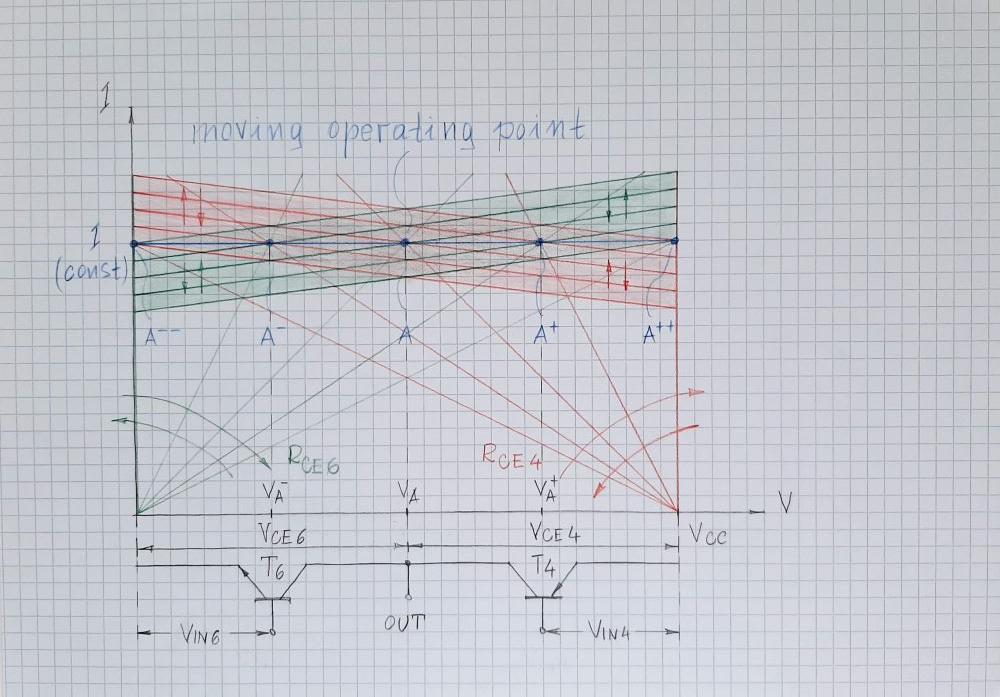 I
moving operating point
I
(const)
A--
A-
A
A+
A++
RCE6
RCE4
VA-
VA
VA+
V
VCE6
VCE4
VCC
T6
T4
OUT
VIN6
VIN4